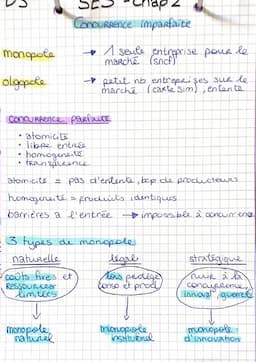 DS SES - Chap 2
Concurrence imparfaite
monopole → 1 seule entreprise pour le marché (sncf)
oligopole → petit nb entreprises sur le marché (carte sim), entente
concurrence parfaite
• atomicité
• libre entrée
• homogénéité
• transparence
atomicité = pas d'entente, bcp de producteurs
homogeneité = produits identiques
barrières à l'entrée → impossible à concurrencer
3 types de monopole
naturelle légal stratégique
coûts fixes et ressources limitées
lois protège conso et prod
nuir à la concurrence, innovat°, guerre
monopole naturel
monopole institutionel
monopole d'innovation